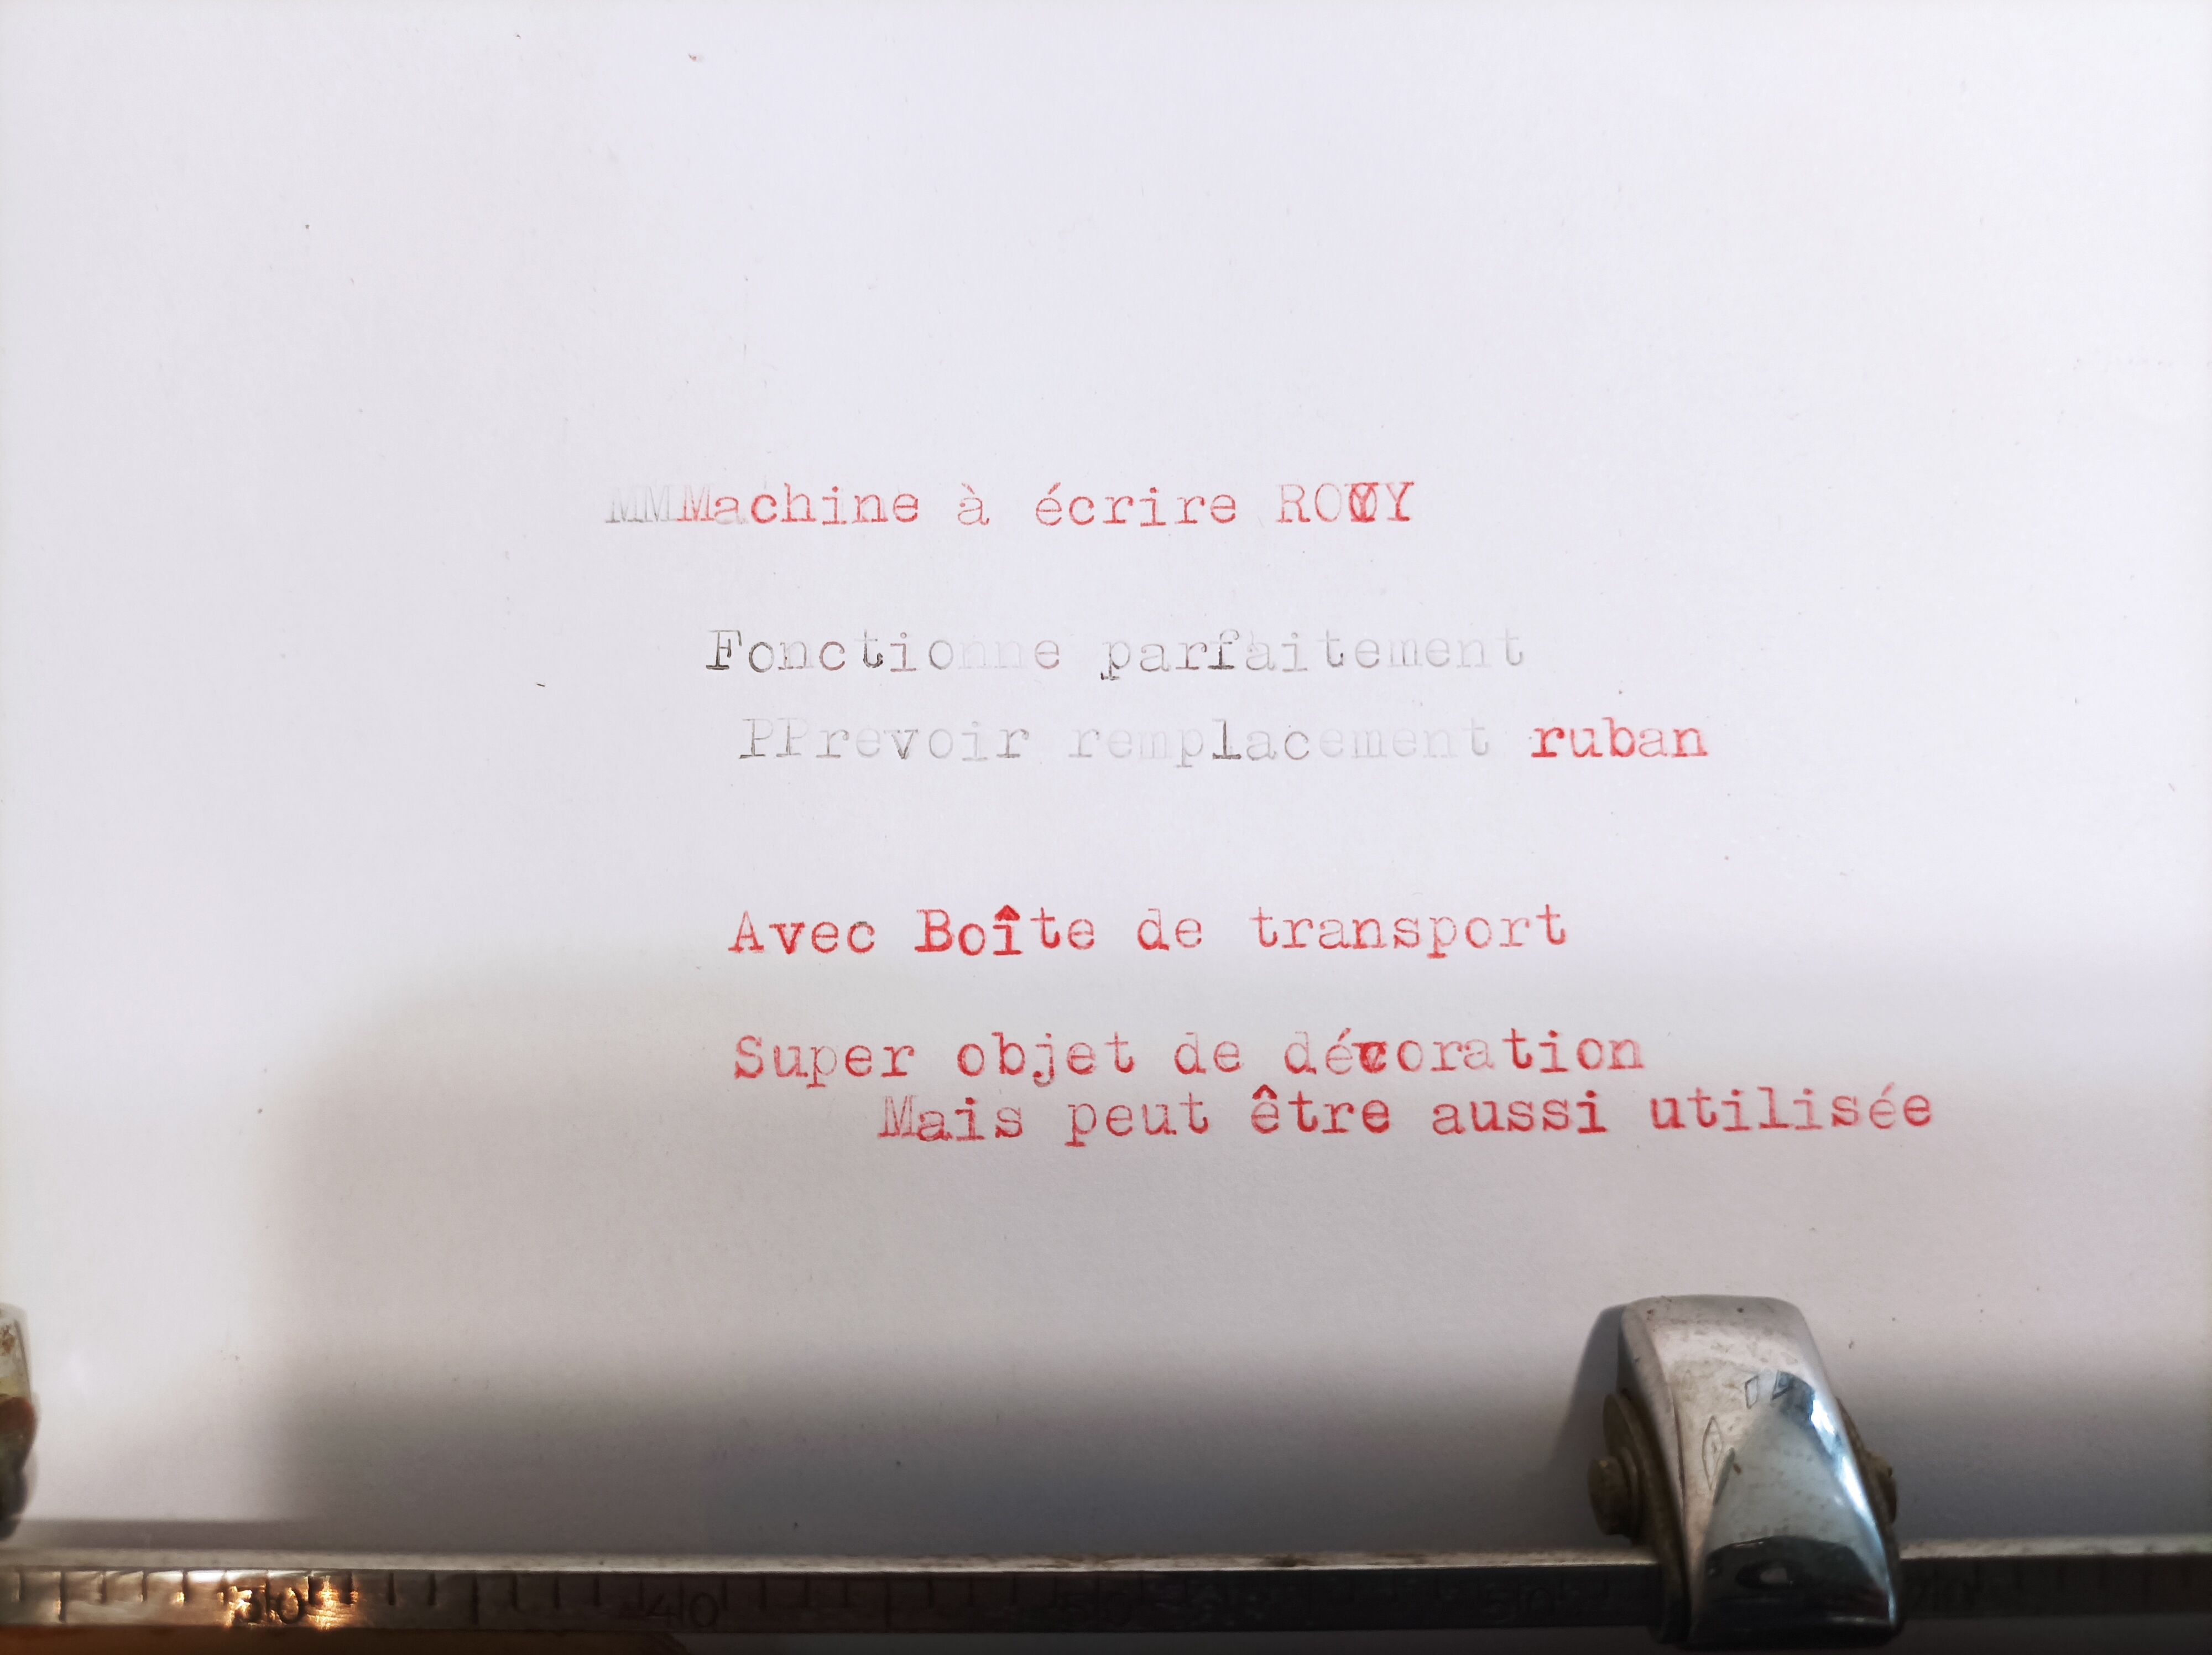 MMMachine à écrire ROOY
Fonctionne parfaitement
PPrevoir remplacement ruban
Avec Boîte de transport
Super objet de décoration
Mais peut être aussi utilisée
30 40 50 60 70